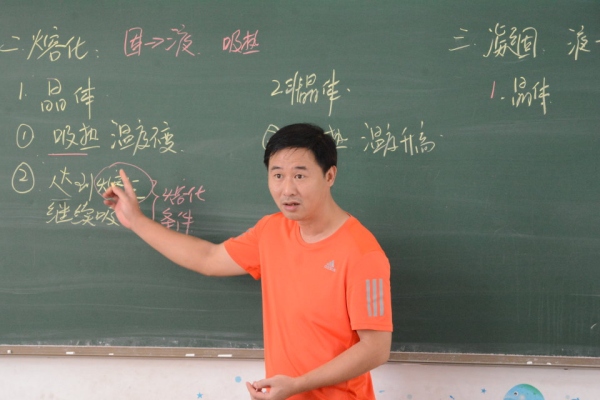 二.熔化: 固→液 吸热
1.晶体
① 吸热 温度不变
② 达到
继续吸
熔化
条件
2.非晶体.
热 温度升高
三.凝固. 液
1.晶体
adidas